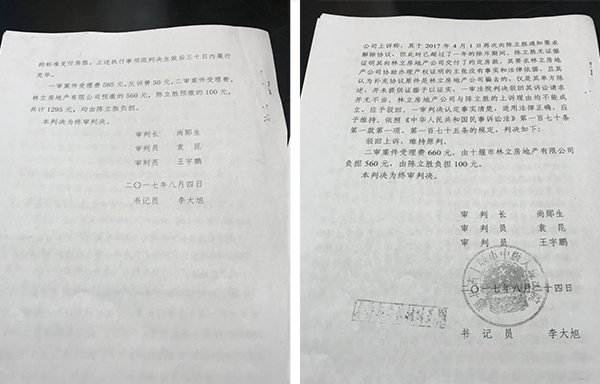 的标准支付房租。上述执行事项限判决生效后三十日内履行
完毕。
一审案件受理费585元,反诉费50元,二审案件受理费,
林立房地产有限公司预缴的560元,陈立胜预缴的100元,
共计1295元,均由陈立胜负担。
本判决为终审判决。
审判长 尚郧生
审判员 袁昆
审判员 王宇鹏
二〇一七年八月四日
书记员 李大旭
公司上诉称,其于2017年4月1日再次向陈立胜通知要求
解除协议,但此时已超过了一年的除斥期间,陈立胜无证据
证明其向林立房地产公司交付了约定房款,其要求林立房地
产公司协助办理产权证明的主张没有事实和法律依据,且其
认为补充协议案件是林立房地产公司骗去的,仅是其单方陈
述,并未提供证据予以证实,一审法院判决驳回其诉讼请求
并无不当。林立房地产公司与陈立胜的上诉理由均不能成
立,应予驳回。一审判决认定事实清楚,适用法律正确,应
予维持。依照《中华人民共和国民事诉讼法》第一百七十条
第一款第一项、第一百七十五条的规定,判决如下:
驳回上诉,维持原判。
二审案件受理费660元,由十堰市林立房地产有限公司
负担560元,由陈立胜负担100元。
本判决为终审判决。
审判长 尚郧生
审判员 袁昆
审判员 王宇鹏
湖北省十堰市中级人民法院
二〇一七年八月二十四日
书记员 李大旭